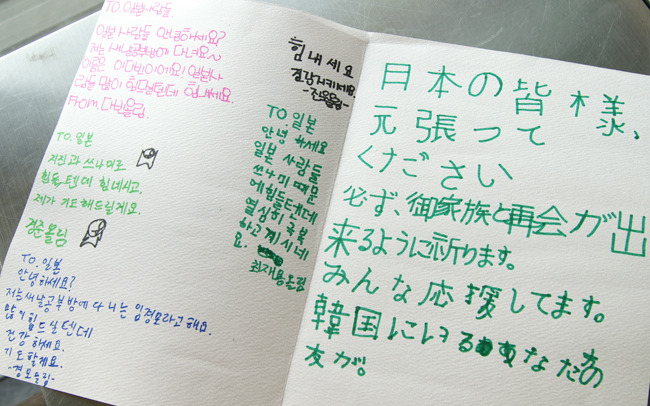 TO. 일본사람들.
일본 사람들 안녕하세요?
저는 새날공부방에 다녀요~
이름은 이다빈이에요! 일본사
람들 많이 힘드실텐데 힘내세요.
From. 다빈올림.
TO. 일본
지진과 쓰나미로
힘들텐데 힘내시고.
제가 기도해드릴게요.
경준올림
TO. 일본
안녕하세요?
저는 새날공부방에 다니는 임경모라고 해요.
많이 힘드실텐데
건강하세요.
기도할게요.
-경모올림-
힘내세요
건강지키세요.
TO. 일본
안녕하세요
일본 사람들
쓰나미 때문
에 힘들텐데
열심히 극복
하고 계시네
요.
최재용올림
日本の皆様、
元張って
ください
必ず、御家族と再会が出
来るように祈ります。
みんな応援してます。
韓国にいるあなたの
友が!